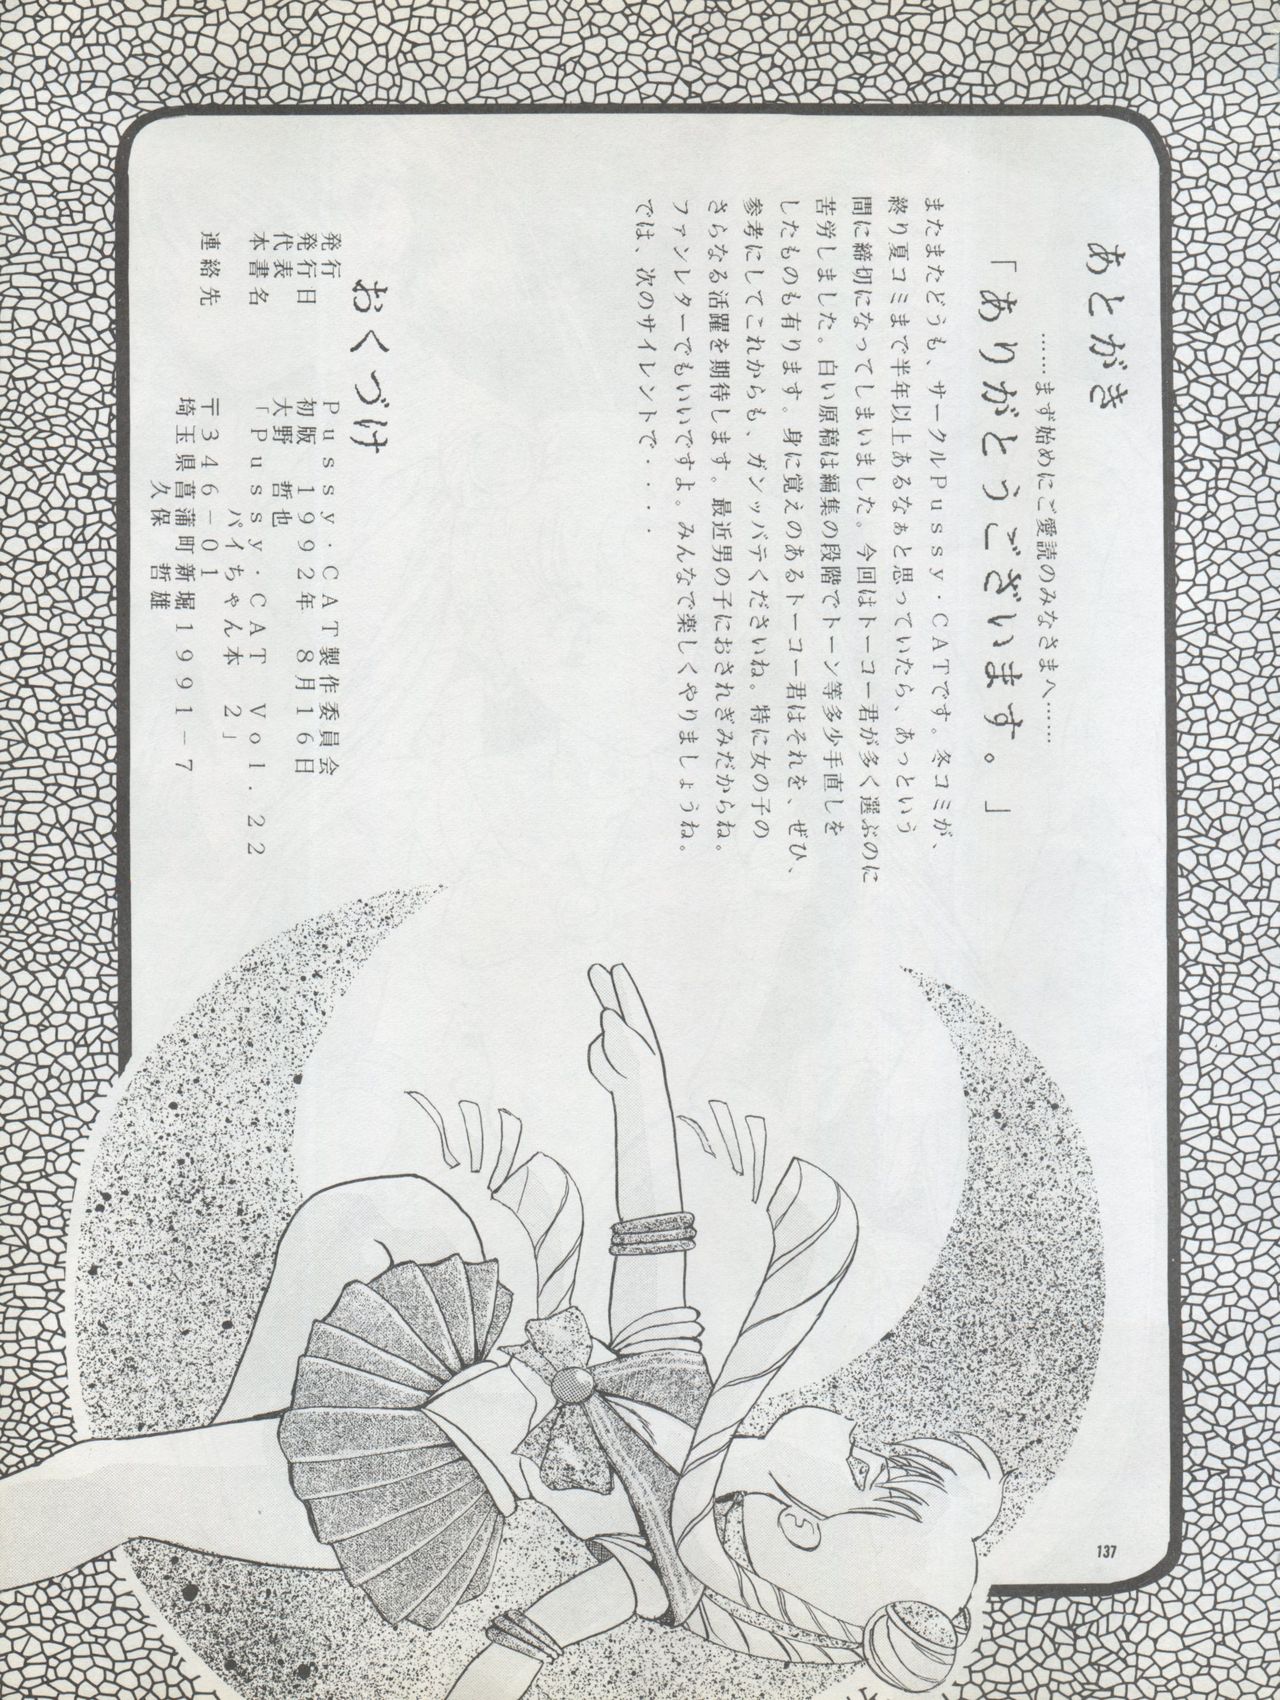 あとがき
……まず始めにご愛読のみなさまへ……
「ありがとうございます。」
またまたどうも、サークルPussy・CATです。冬コミが、
終り夏コミまで半年以上あるなぁと思っていたら、あっという
間に締切になってしまいました。今回はトーコー君が多く選ぶのに
苦労しました。白い原稿は編集の段階でトーン等多少手直しを
したものも有ります。身に覚えのあるトーコー君はそれを、ぜひ、
参考にしてこれからも、ガンッバテくださいね。特に女の子の
さらなる活躍を期待します。最近男の子におされぎみだからね。
ファンレターでもいいですよ。みんなで楽しくやりましょうね。
では、次のサイレントで・・・・
おくづけ
発行 Pussy・CAT製作委員会
発行日 初版 1992年 8月16日
代表 大野 哲也
本書名 「Pussy・CAT Vol.22
パイちゃん本 2」
連絡先 〒346-01
埼玉県菖蒲町新堀1991-7
久保 哲雄
137